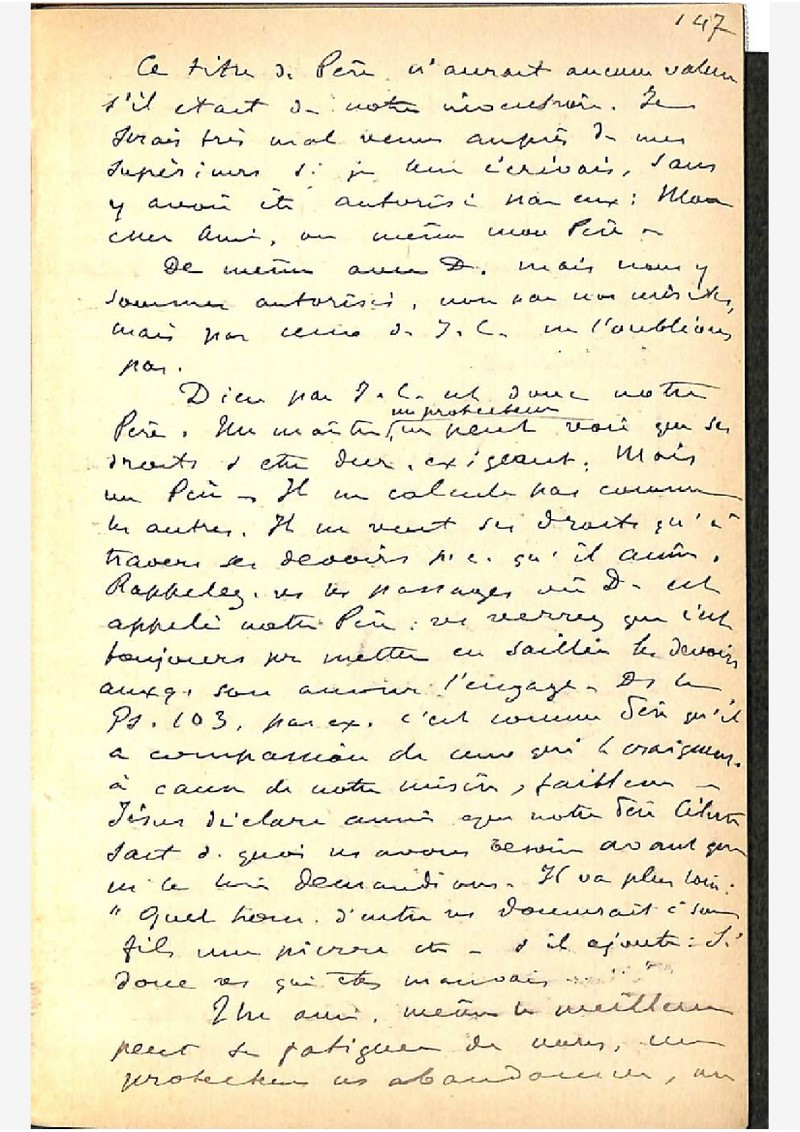 147
Ce titre de Père n'aurait aucune valeur
s'il était de notre invention. Je
serais très mal venu auprès de mes
supérieurs si je leur écrivais, sans
y avoir été autorisé par eux : Mon
cher Ami, ou même mon Père -
De même avec D. mais nous y
sommes autorisés, non par nos mérites,
mais par ceux de J. C. ne l'oublions
pas.
Dieu par J. C. est donc notre
un protecteur
Père. Un maître, ne peut voir que ses
droits & être dur, exigeant. Mais
un Père - Il ne calcule pas comme
les autres. Il ne veut ses droits qu'à
travers ses devoirs p. c. qu'il aime.
Rappelez-vs les passages où D. est
appelé notre Père : vs verrez que c'est
toujours pr mettre en saillie les devoirs
auxq. son amour l'engage. Ds le
Ps. 103, par ex. c'est comme Père qu'il
a compassion de ceux qui le craignent.
à cause de notre misère, faiblesse -
Jésus déclare aussi que notre Père Céleste
sait de quoi ns avons besoin avant que
ns le lui demandions. Il va plus loin :
" Quel hom. d'entre vs donnerait à son
fils une pierre etc - & il ajoute : Si
donc vs qui êtes mauvais
Un ami, même le meilleur
peut se fatiguer de nous, un
protecteur ns abandonner, un